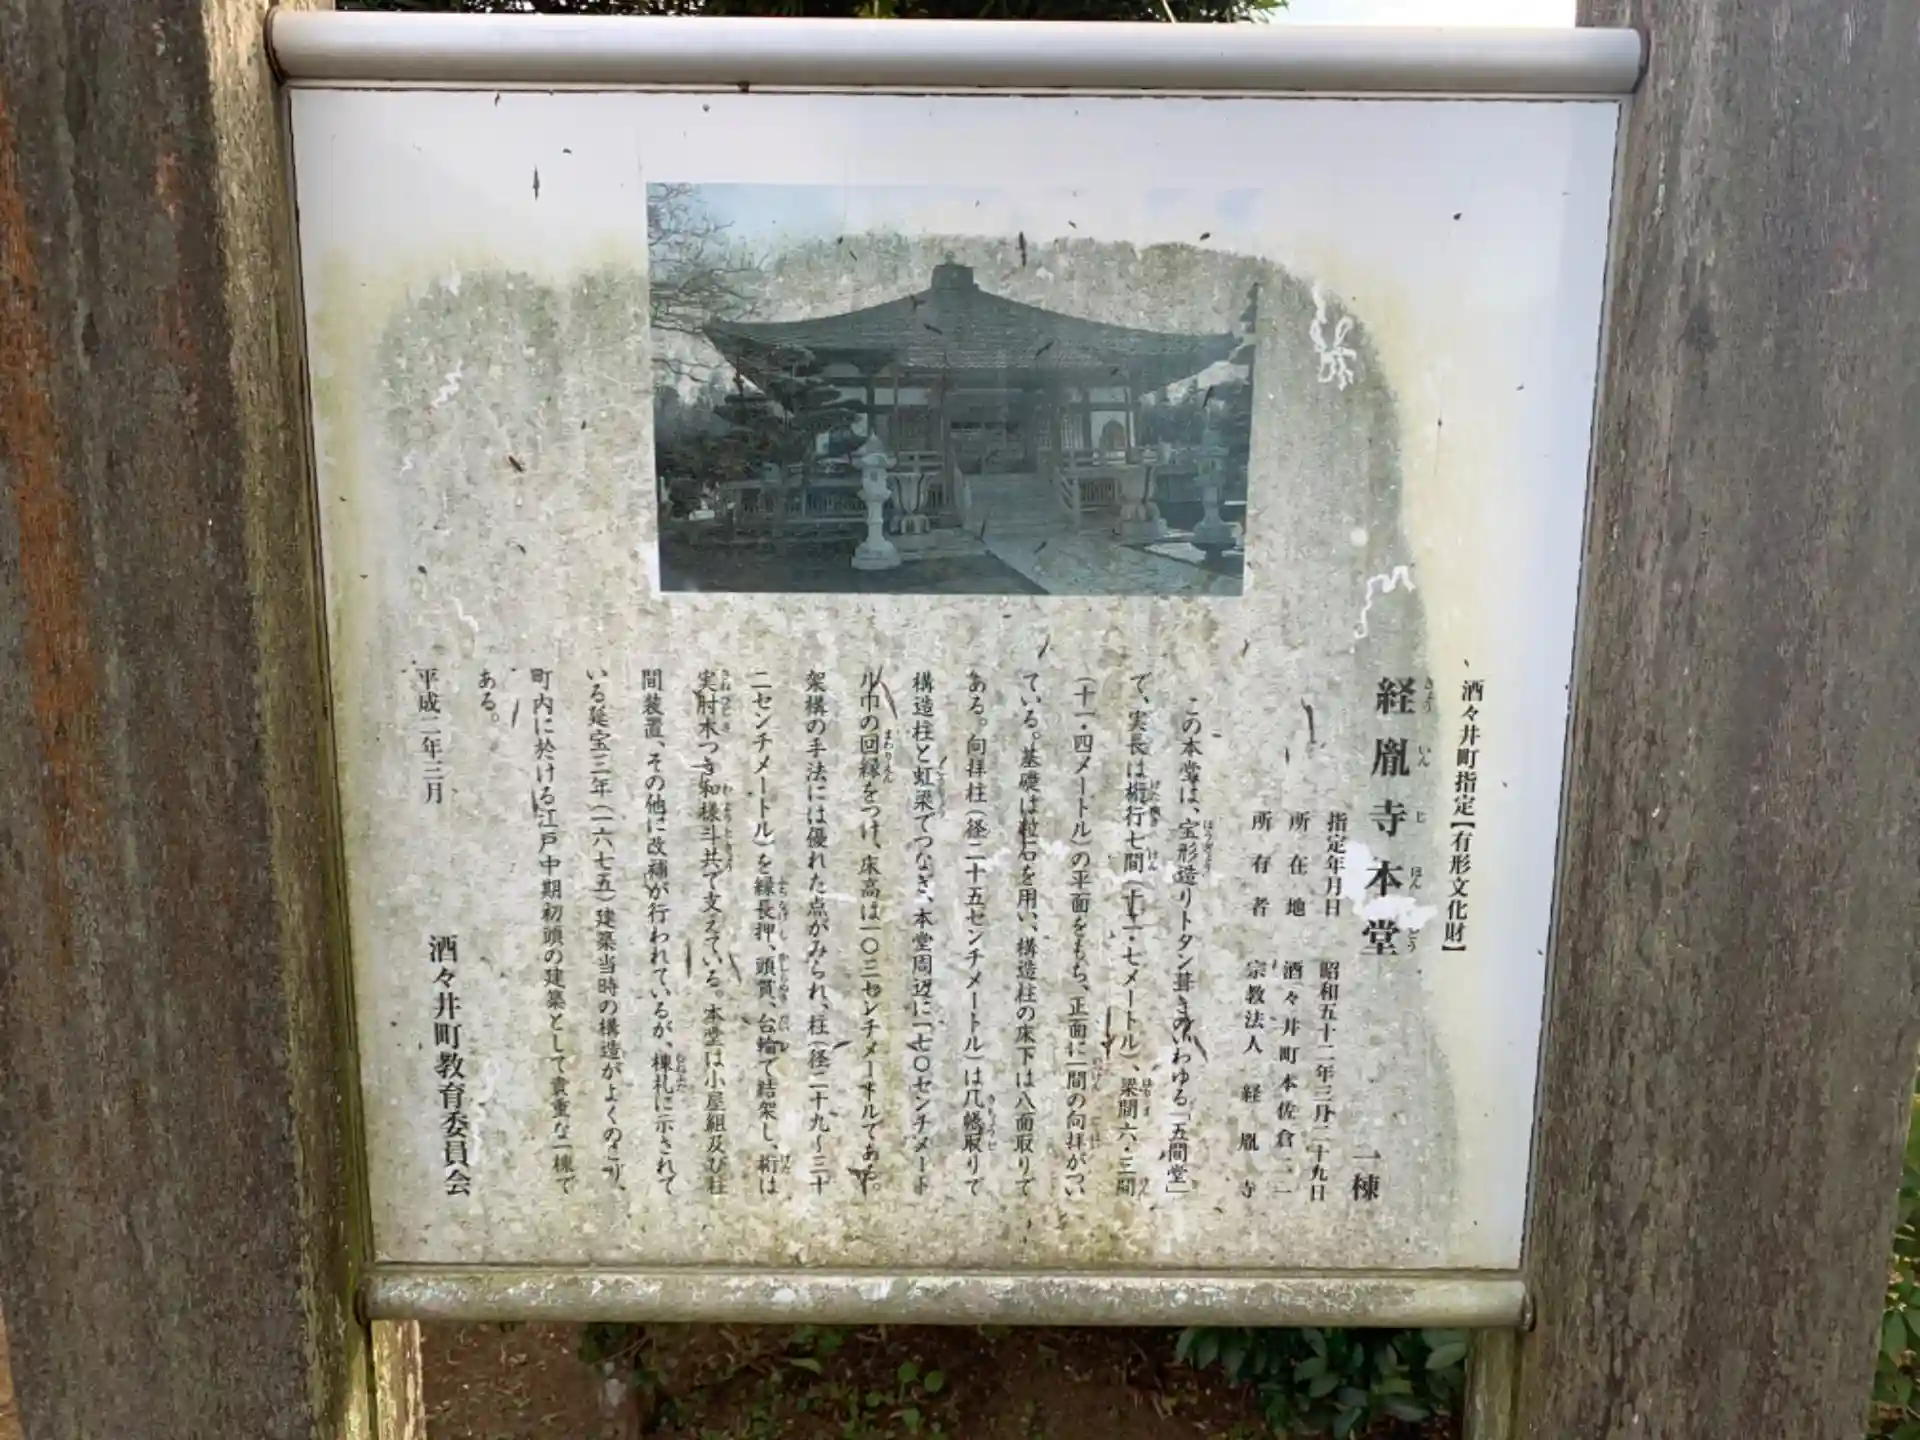 酒々井町指定【有形文化財】
経胤寺本堂 一棟
きょういんじほんどう
指定年月日 昭和五十二年三月二十九日
所在地 酒々井町本佐倉二一
所有者 宗教法人 経胤寺
この本堂は、宝形造りトタン葺きのいわゆる「五間堂」
で、実長は桁行七間(十二・七メートル)、梁間六・三間
(十一・四メートル)の平面をもち、正面に一間の向拝がつい
ている。基礎は粒石を用い、構造柱の床下は八面取りで
ある。向拝柱(径二十五センチメートル)は几帳取りで
構造柱と虹梁でつなぎ、本堂周辺に一七〇センチメート
ル巾の回縁をつけ、床高は一〇三センチメートルである。
架構の手法には優れた点がみられ、柱(径二十九〜三十
二センチメートル)を縁長押、頭貫、台輪で結架し、桁は
実肘木つき和様斗共で支えている。本堂は小屋組及び柱
間装置、その他に改補が行われているが、棟札に示されて
いる延宝三年(一六七五)建築当時の構造がよくのこり、
町内に於ける江戸中期初頭の建築として貴重な一棟で
ある。
平成二年三月
酒々井町教育委員会